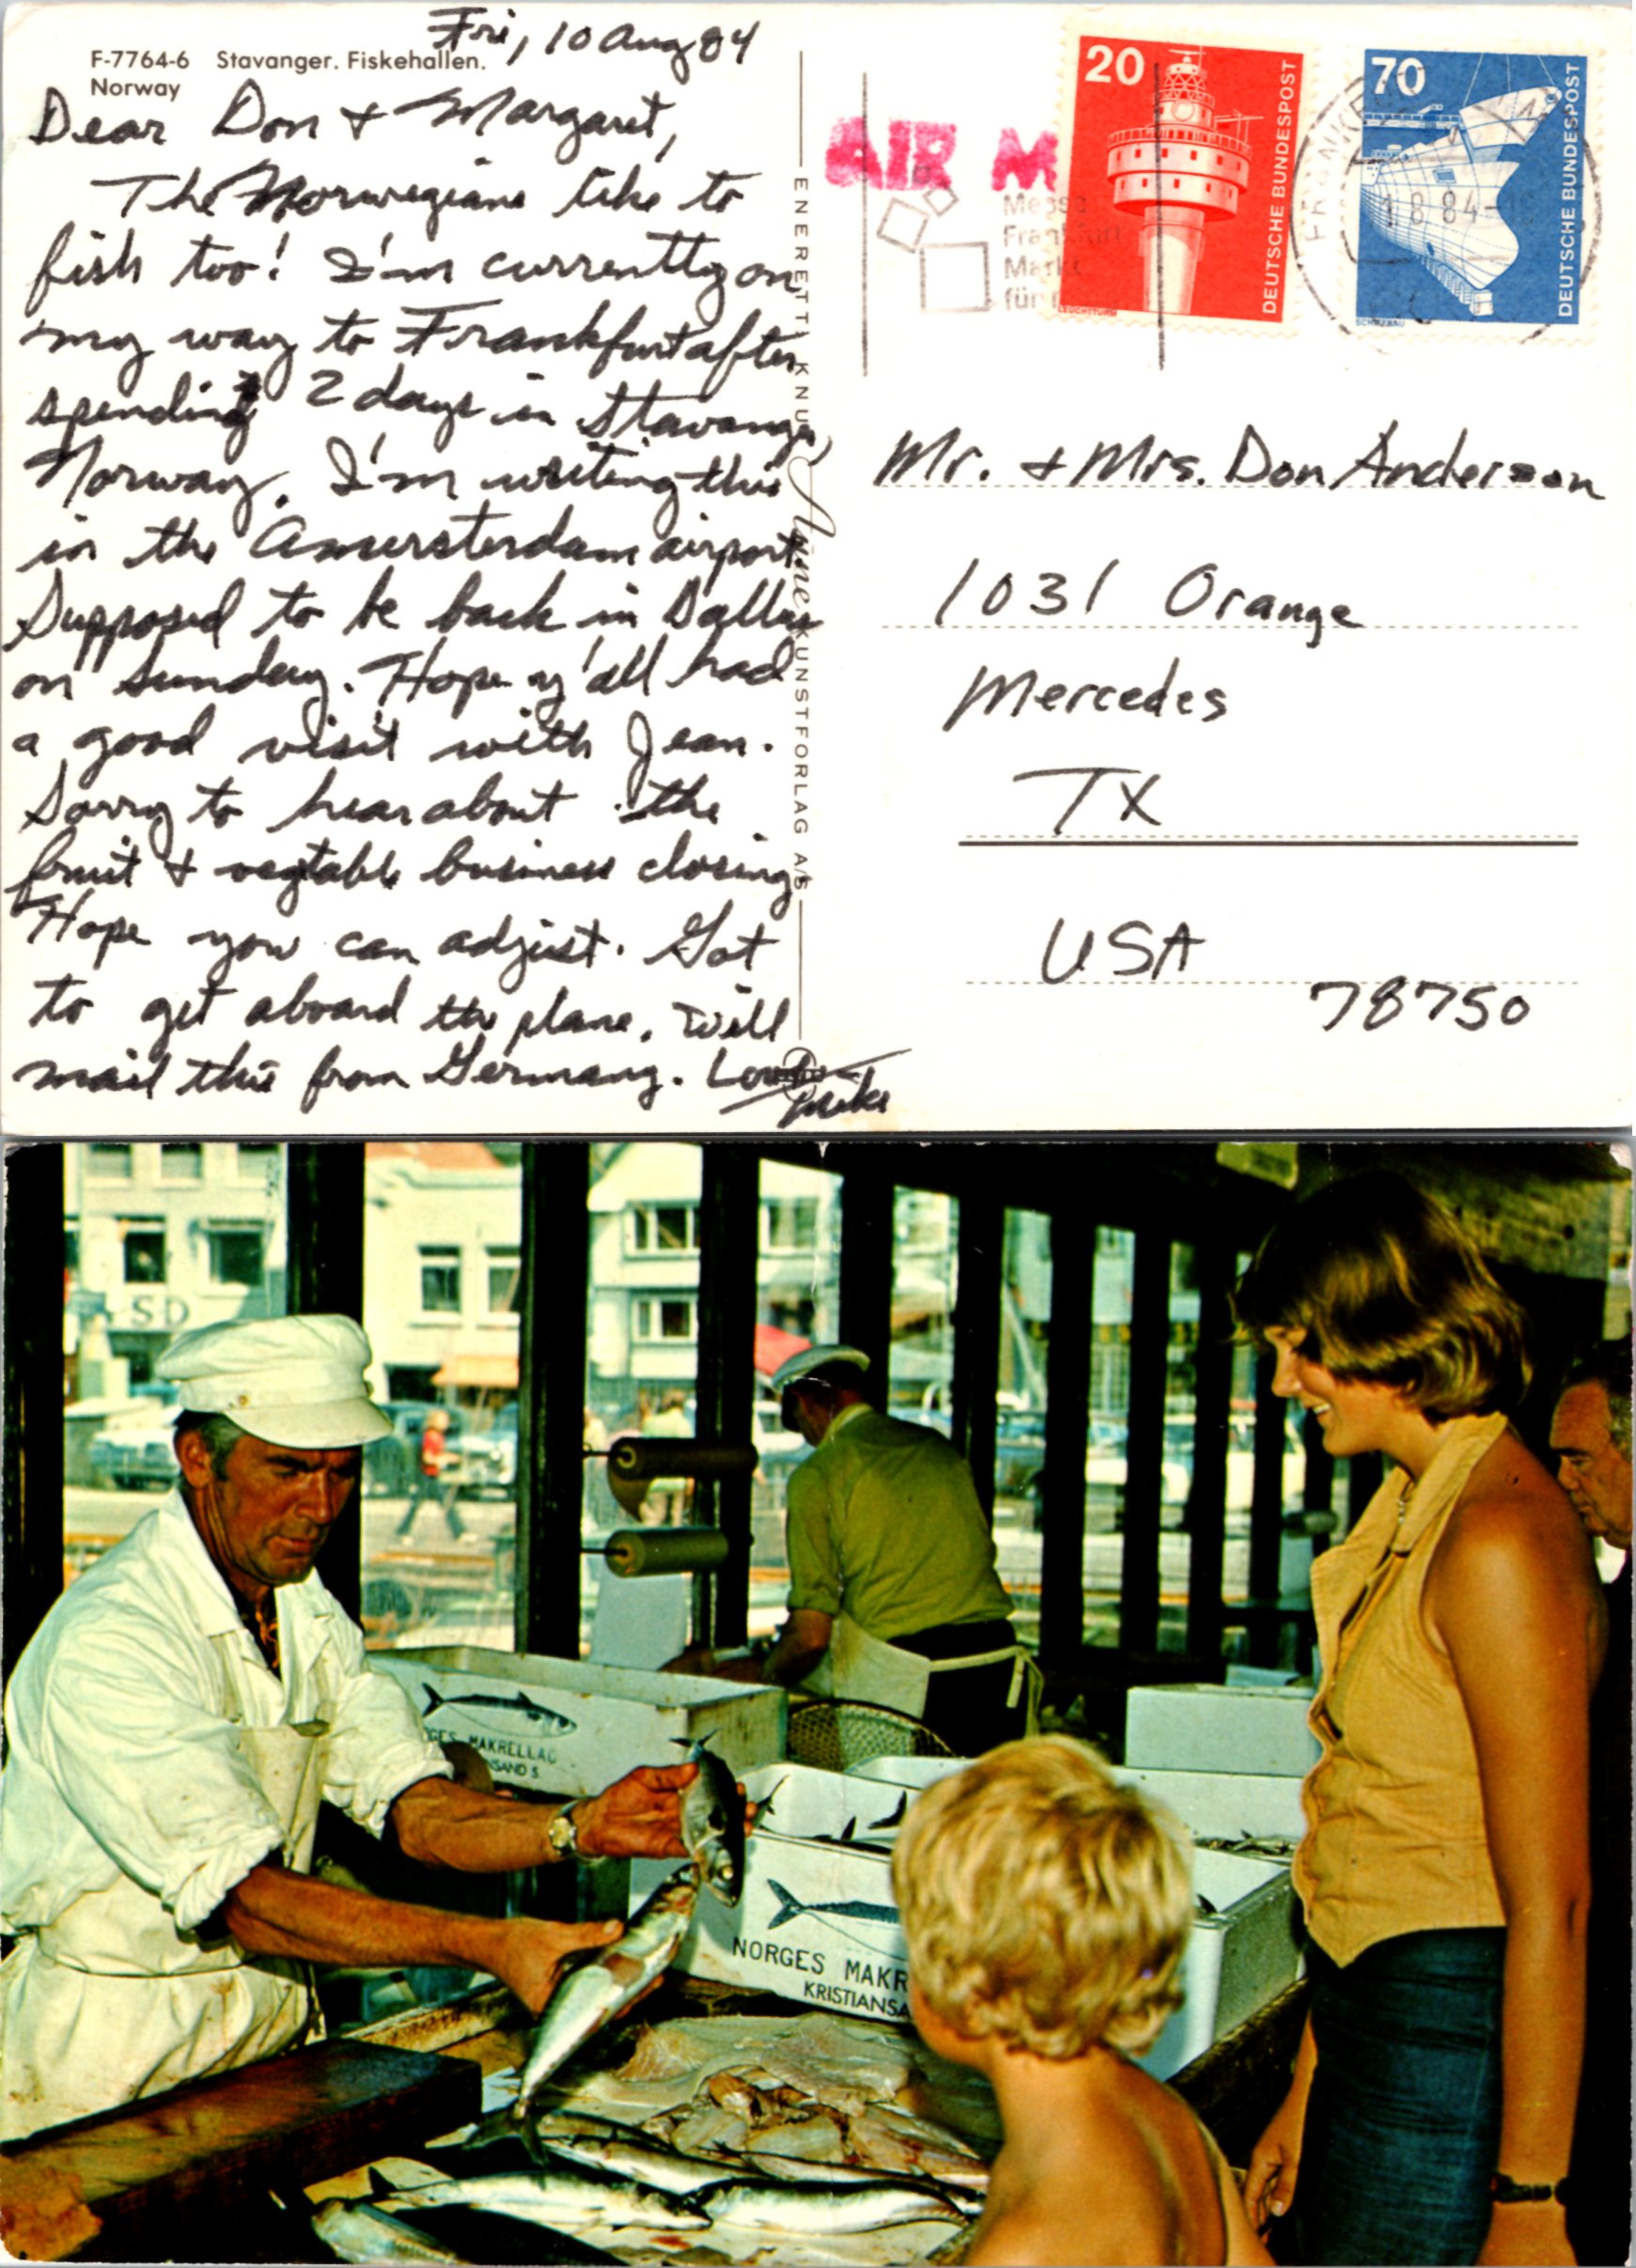 Fri, 10 Aug 84
F-7764-6 Stavanger. Fiskehallen.
Norway
Dear Don & Margaret,
The Norwegians like to
fish too! I'm currently on
my way to Frankfurt after
spending 2 days in Stavanger,
Norway. I'm writing this
in the Amersterdam airport.
Supposed to be back in Dallas
on Sunday. Hope y'all had
a good visit with Jean.
Sorry to hear about the
fruit & vegtable business closing
Hope you can adjust. Got
to get aboard the plane. Will
mail this from Germany. Love
Mike
ENERETT: KNUT Aune KUNSTFORLAG A/S
AIR M
Messe
Frankfurt
Markt
für
20
DEUTSCHE BUNDESPOST
LEUCHTTURM
70
DEUTSCHE BUNDESPOST
SCHIFFBAU
8 84
Mr. & Mrs. Don Anderson
1031 Orange
Mercedes
TX
USA
78750
SD
GES MAKRELLAG
SAND S.
NORGES MAKR
KRISTIANSA